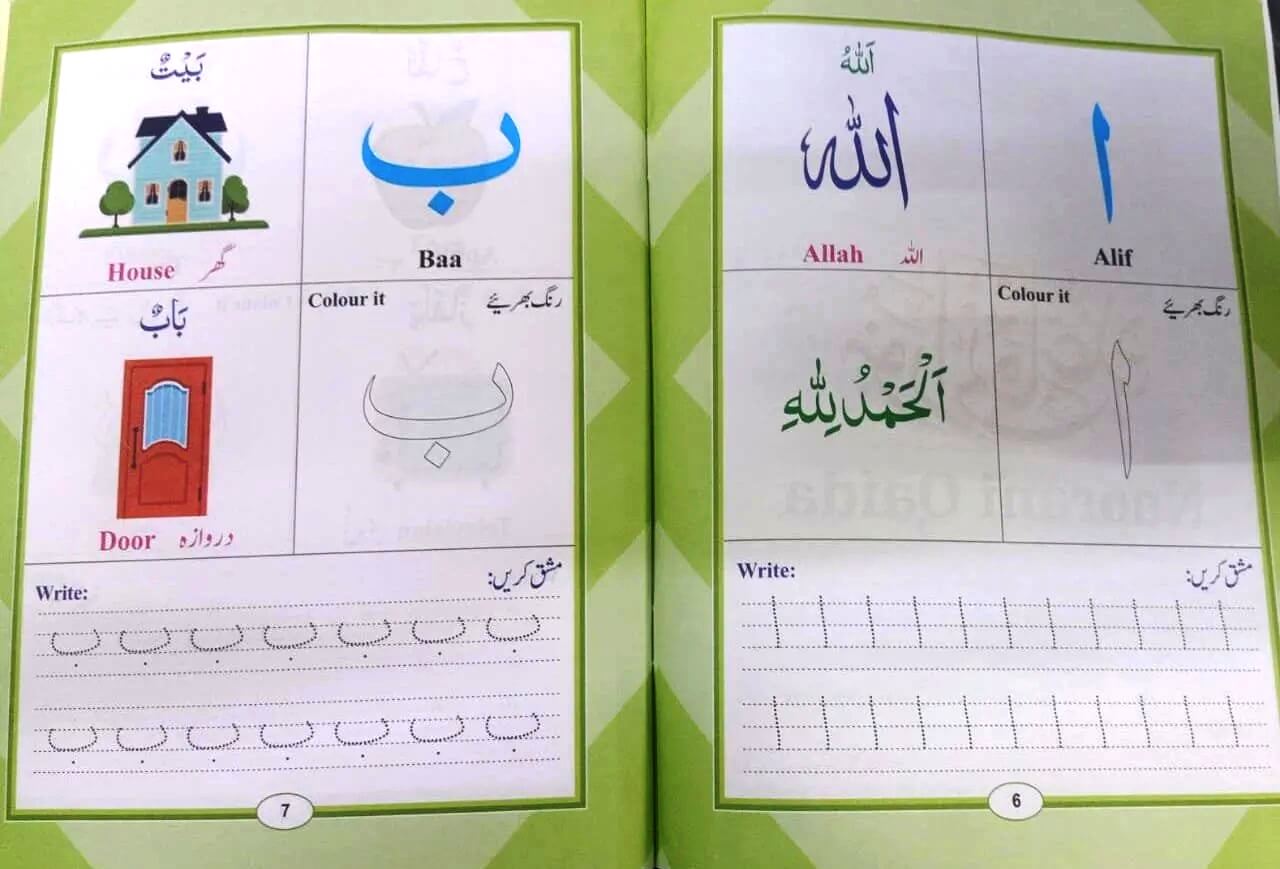 ا
Alif
اَللّٰهُ
الله
Allah اللہ
Colour it رنگ بھریئے
ا
اَلْحَمْدُ لِلّٰهِ
Write: مشق کریں:
ا ا ا ا ا ا ا ا ا ا ا
ا ا ا ا ا ا ا ا ا ا ا
6
ب
Baa
بَيْتٌ
House گھر
Colour it رنگ بھریئے
ب
بَابٌ
Door دروازہ
Write: مشق کریں:
ب ب ب ب ب ب ب
ب ب ب ب ب ب ب
7